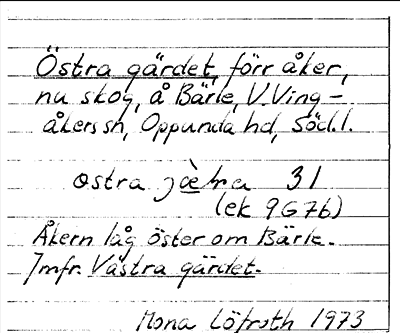 Östra gärdet, förr åker,
nu skog, å Bärle, V. Ving-
åkers sn, Oppunda hd, Söd.l.
ostra 31
(ek 9G7b)
Åkern låg öster om Bärle.
Jmfr. Västra gärdet.
Mona Löfroth 1973